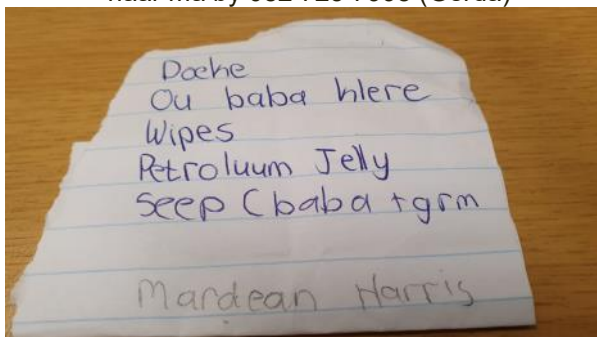 haar ma by (Gerda)
Doeke
Ou baba klere
Wipes
Petroluum Jelly
Seep (baba + grm
Mardean Harris